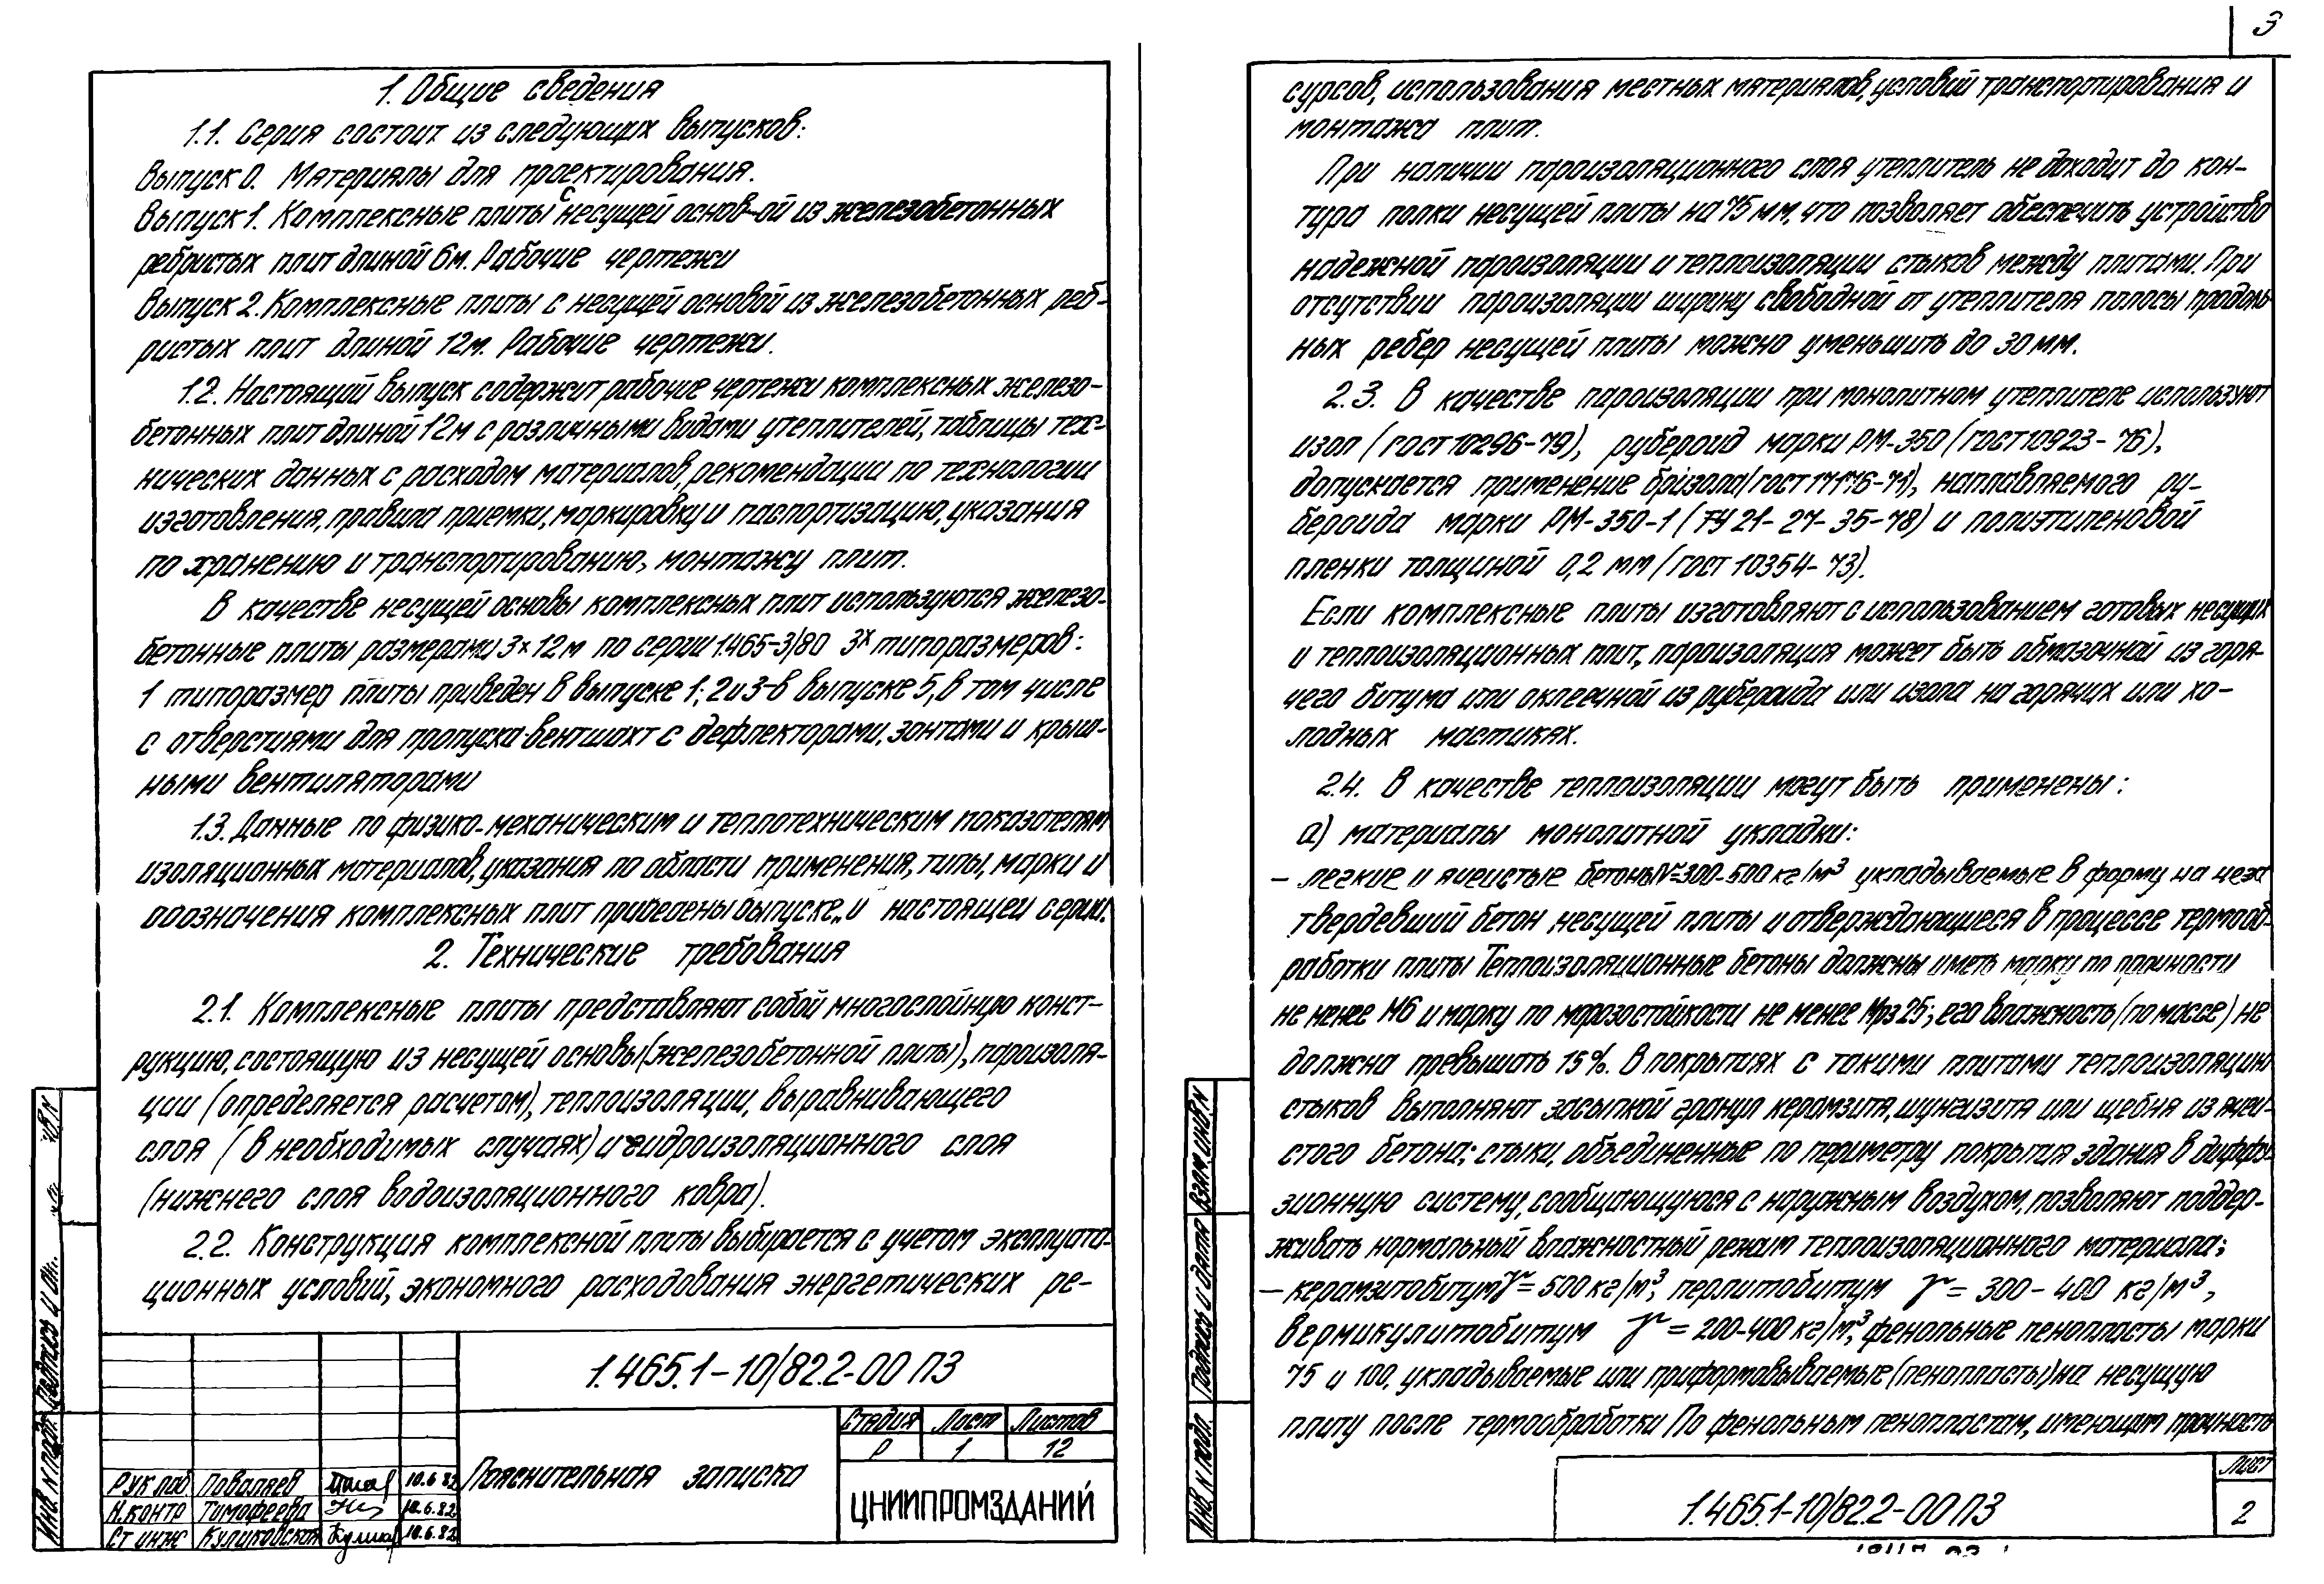 1. Общие сведения
1.1. Серия состоит из следующих выпусков:
Выпуск 0. Материалы для проектирования.
Выпуск 1. Комплексные плиты с несущей основ-ой из железобетонных
ребристых плит длиной 6м. Рабочие чертежи
Выпуск 2. Комплексные плиты с несущей основой из железобетонных реб-
ристых плит длиной 12м. Рабочие чертежи.
1.2. Настоящий выпуск содержит рабочие чертежи комплексных железо-
бетонных плит длиной 12м с различными видами утеплителей, таблицы тех-
нических данных с расходом материалов, рекомендации по технологии
изготовления, правила приемки, маркировку и паспортизацию, указания
по хранению и транспортированию, монтажу плит.
В качестве несущей основы комплексных плит используются железо-
бетонные плиты размерами 3×12м по серии 1.465-3/80 3х типоразмеров:
1 типоразмер плиты приведен в выпуске 1; 2 и 3-в выпуске 5, в том числе
с отверстиями для пропуска вентшахт с дефлекторами, зонтами и крыш-
ными вентиляторами
1.3. Данные по физико-механическим и теплотехническим показателям
изоляционных материалов, указания по области применения, типы, марки и
обозначения комплексных плит приведены выпуске „0 настоящей серии.
2. Технические требования
2.1. Комплексные плиты представляют собой многослойную конст-
рукцию, состоящую из несущей основы (железобетонной плиты), пароизоля-
ции (определяется расчетом), теплоизоляции, выравнивающего
слоя (в необходимых случаях) и гидроизоляционного слоя
(нижнего слоя водоизоляционного ковра).
2.2. Конструкция комплексной плиты выбирается с учетом эксплуата-
ционных условий, экономного расходования энергетических ре-
1.465.1-10/82.2-00 ПЗ
Стадия Лист Листов
Р 1 12
Пояснительная записка
Рук лаб Поваляев 10.6.82
Н.контр Тимофеева 10.6.82
Ст инж Куликовская 10.6.82
ЦНИИПРОМЗДАНИЙ
Инв. N подл. Подпись и
3
сурсов, использования местных материалов, условий транспортирования и
монтажа плит.
При наличии пароизоляционного слоя утеплитель не доходит до кон-
тура полки несущей плиты на 75 мм, что позволяет обеспечить устройство
надежной пароизоляции и теплоизоляции стыков между плитами. При
отсутствии пароизоляции ширину свободной от утеплителя полосы продоль-
ных ребер несущей плиты можно уменьшить до 30 мм.
2.3. В качестве пароизоляции при монолитном утеплителе используют
изол (ГОСТ 10296-79), рубероид марки РМ-350 (ГОСТ 10923-76),
допускается применение бризола (ГОСТ 17176-71), наплавляемого ру-
бероида марки РМ-350-1 (ТУ 21-27-35-78) и полиэтиленовой
пленки толщиной 0,2 мм (ГОСТ 10354-73).
Если комплексные плиты изготовляют с использованием готовых несущих
и теплоизоляционных плит, пароизоляция может быть обмазочной из горя-
чего битума или оклеечной из рубероида или изола на горячих или хо-
лодных мастиках.
2.4. В качестве теплоизоляции могут быть применены:
а) материалы монолитной укладки:
– легкие и ячеистые бетоны γ=300-500 кг/м³ укладываемые в форму на неза
твердевший бетон несущей плиты и отверждающиеся в процессе термооб-
работки плиты Теплоизоляционные бетоны должны иметь марку по прочности
не менее М6 и марку по морозостойкости не менее Мрз 25; его влажность (по массе) не
должна превышать 15%. В покрытиях с такими плитами теплоизоляцию
стыков выполняют засыпкой гранул керамзита, шунгизита или щебня из ячеи-
стого бетона; стыки, объединенные по периметру покрытия здания в диффу-
зионную систему, сообщающуюся с наружным воздухом, позволяют поддер-
живать нормальный влажностный режим теплоизоляционного материала;
– керамзитобитум γ = 500 кг/м³, перлитобитум γ = 300 - 400 кг/м³,
вермикулитобитум γ = 200-400 кг/м³, фенольные пенопласты марки
75 и 100, укладываемые или приформовываемые (пенопласты) на несущую
плиту после термообработки По фенольным пенопластам, имеющим прочность
1.465.1-10/82.2-00 ПЗ
Лист
2
Инв. N подл. Подпись и дата Взам. инв. N